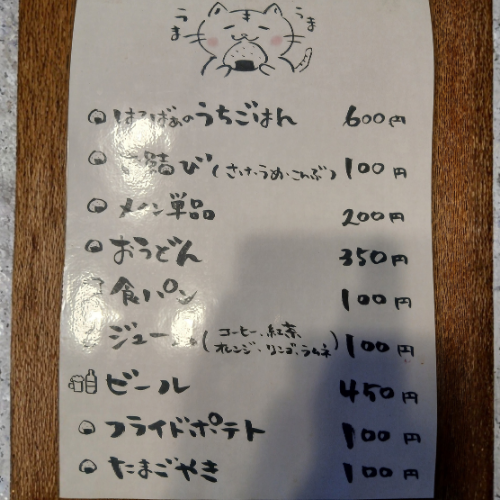 うま
うま
はるばあのうちごはん 600円
ご結び(さけ・うめ・こんぶ) 100円
メイン単品 200円
おうどん 350円
食パン 100円
ジュース(コーヒー、紅茶 オレンジ・リンゴ、ラムネ) 100円
ビール 450円
フライドポテト 100円
たまごやき 100円